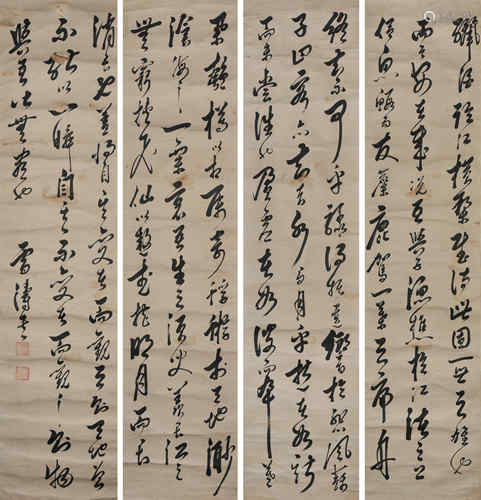 釃酒臨江橫槊賦詩此固一世之雄也
而今安在哉況吾與子漁樵於江渚之上
侶魚蝦而友麋鹿駕一葉之扁舟
終知不可乎驟得托遺響於悲風蘇
子曰客亦知夫水與月乎逝者如斯
而未嘗往也盈虛者如彼而卒莫
舉匏樽以相屬寄蜉蝣於天地渺
滄海之一粟哀吾生之須臾羨長江之
無窮挾飛仙以遨遊抱明月而長
消長也蓋將自其變者而觀之則天地曾
不能以一瞬自其不變者而觀之則物
與吾皆無盡也 雪濤